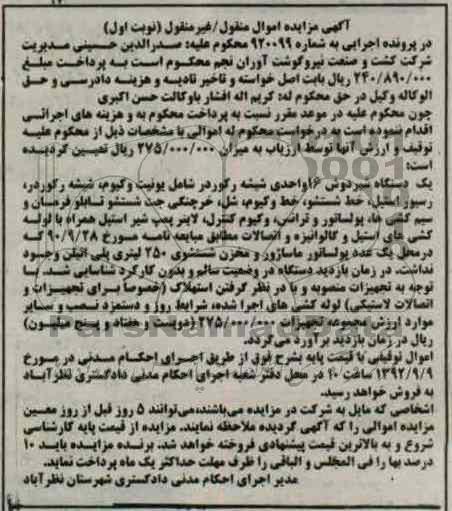 آگهی مزایده اموال منقول/غیرمنقول (نوبت اول)
در پرونده اجرایی به شماره ۹۲۰۰۹۹ محکوم علیه: صدرالدین حسینی مدیریت
شرکت کشت و صنعت نیروگوشت آوران نجم محکوم است به پرداخت مبلغ
۲۴۰/۸۹۰/۰۰۰ ریال بابت اصل خواسته و تاخیر تادیه و هزینه دادرسی و حق
الوکاله وکیل در حق محکوم له: کریم اله افشار باوکالت حسن اکبری
چون محکوم علیه در موعد مقرر نسبت به پرداخت محکوم به و هزینه های اجرائی
اقدام ننموده است به درخواست محکوم له اموالی با مشخصات ذیل از محکوم علیه
توقیف و ارزش آنها توسط ارزیاب به میزان ۲۷۵/۰۰۰/۰۰۰ ریال تعیین گردیده
است:
یک دستگاه شیردوش ۱۶واحدی شیشه رکوردر شامل یونیت وکیوم، شیشه رکوردر،
رسیور استیل، خط شستشو، خط وکیوم، شل، خرچنگی جت شستشو تابلو فرمان و
سیم کشی ها، پولساتور و ترانس، وکیوم کنترل، لاینر پمپ شیر استیل همراه با لوله
کشی های استیل و گالوانیزه و اتصالات مطابق مبایعه نامه مورخ ۹۰/۹/۲۸ که
درمحل یک عدد پولساتور ماساژور و مخزن شستشوی ۲۵۰ لیتری پلی اتیلن وجود
نداشت. در زمان بازدید دستگاه در وضعیت سالم و بدون کارکرد شناسایی شد. با
توجه به تجهیزات منصوبه و با در نظر گرفتن استهلاک (خصوصاً برای تجهیزات و
اتصالات لاستیکی) لوله کشی های اجرا شده، شرایط روز و دستمزد نصب و سایر
موارد ارزش مجموعه تجهیزات ۲۷۵/۰۰۰/۰۰۰ (دویست و هفتاد و پنج میلیون)
ریال در زمان بازدید برآورد می گردد.
اموال توقیفی با قیمت پایه بشرح فوق از طریق اجرای احکام مدنی در مورخ
۱۳۹۲/۹/۹ ساعت ۱۰ در محل دفتر شعبه اجرای احکام مدنی دادگستری نظرآباد
به فروش خواهد رسید.
اشخاصی که مایل به شرکت در مزایده می‌باشند،می‌توانند ۵ روز قبل از روز معین
مزایده اموالی را که آگهی گردیده ملاحظه نمایند. مزایده از قیمت پایه کارشناسی
شروع و به بالاترین قیمت پیشنهادی فروخته خواهد شد. برنده مزایده باید ۱۰
درصد بها را فی المجلس و الباقی را ظرف مهلت حداکثر یک ماه پرداخت نماید.
مدیر اجرای احکام مدنی دادگستری شهرستان نظرآباد